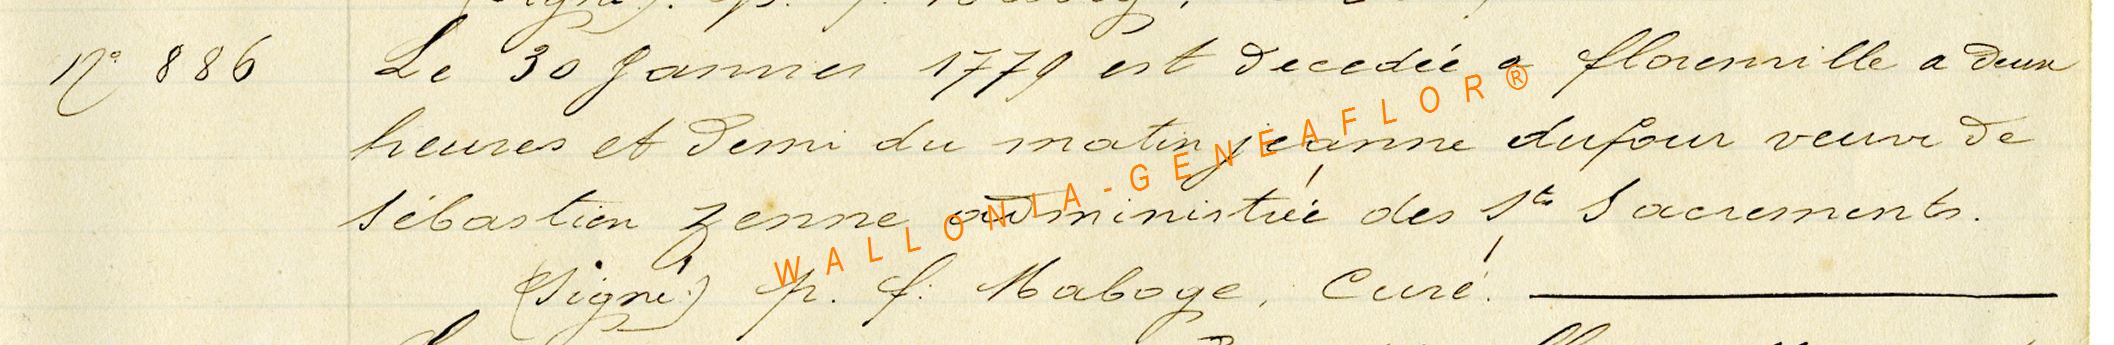 N° 886 Le 30 Janvier 1779 est decedée a florenville a deux
heures et demi du matin jeanne dufour veuve de
sébastien zenne administrée des Sts Sacrements.
(Signé) p. f. Maboge, Curé.
WALLONIA-GENEAFLOR®